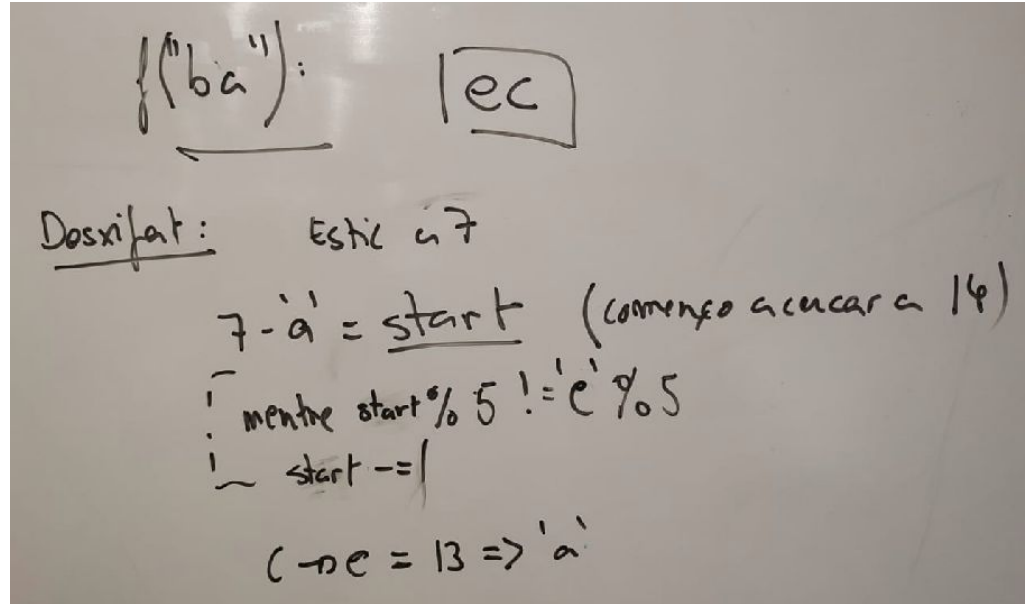 f("ba"): ec
Desxifat: Estic a 7
7-'a' = start (començo a cercar a 14)
mentre start % 5 != 'e' % 5
start -= 1
C → e = 13 => 'a'